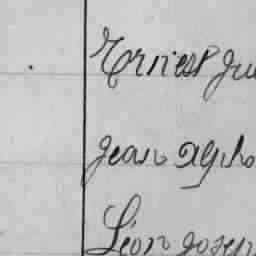 Ernest Ju
Jean Alpho
Léon Joseph